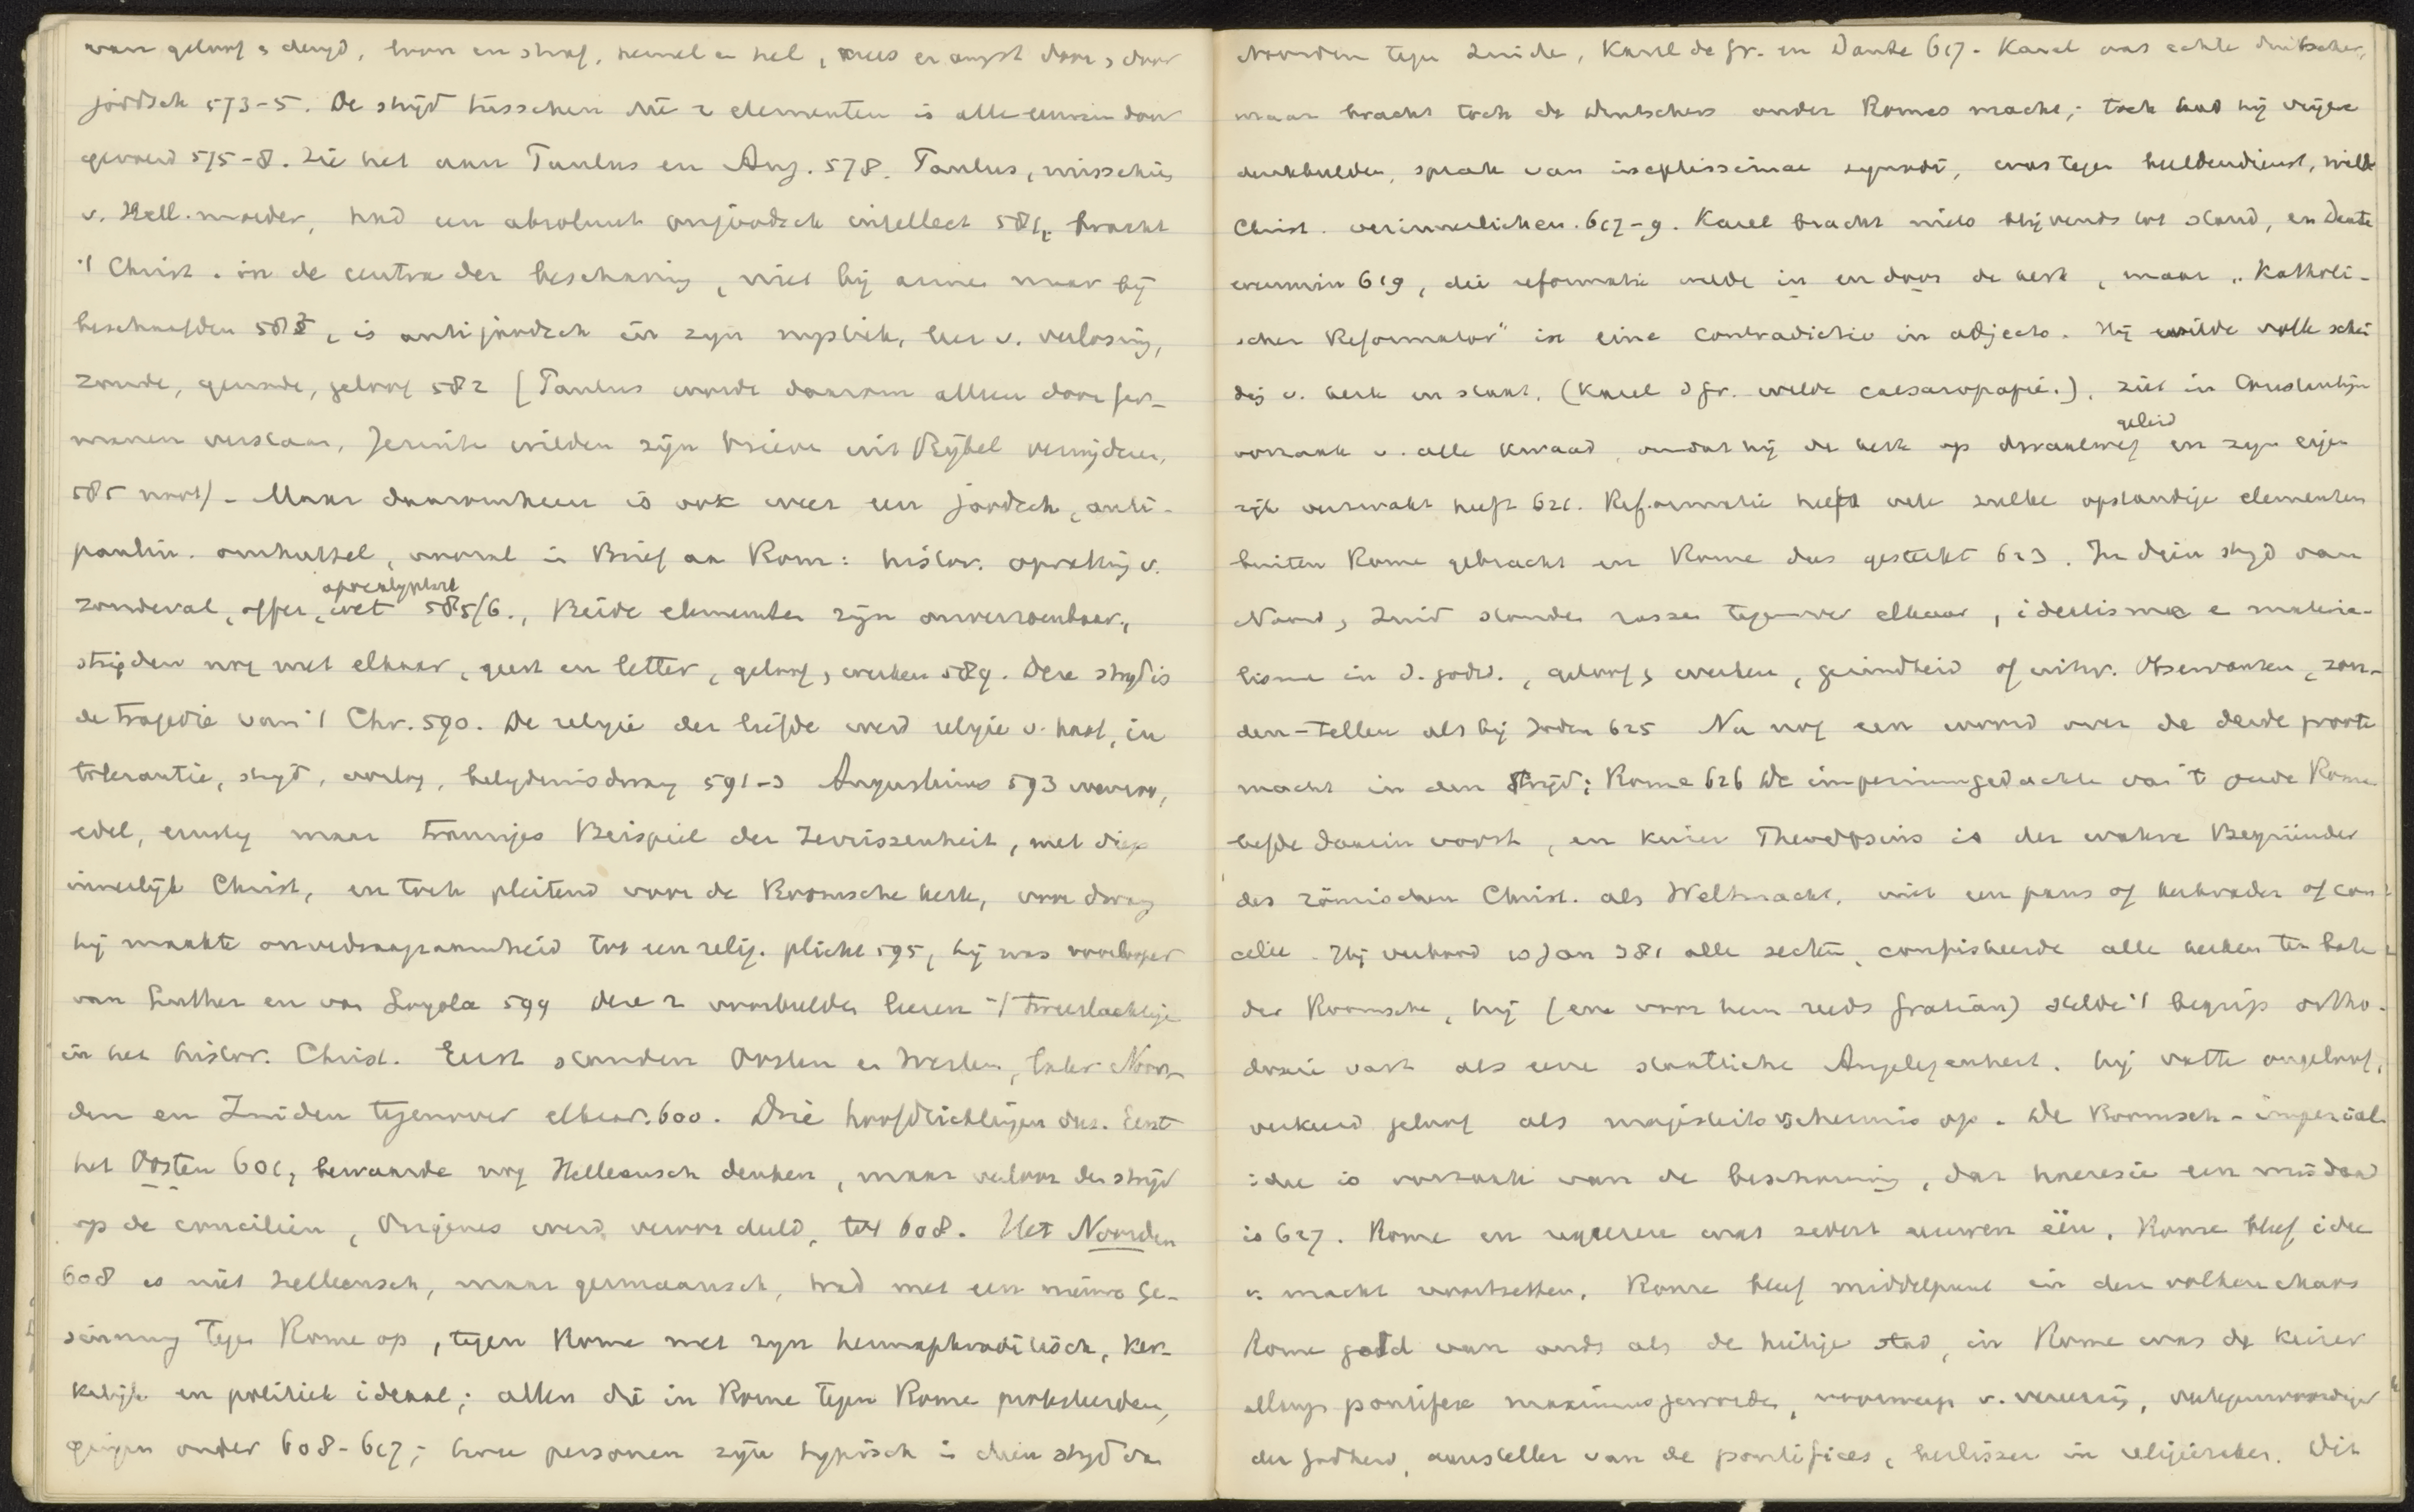 van geloof & deugd, loon en straf, hemel en hel, vrees en angst door & door
joodsch 573-5. De strijd tusschen die 2 elementen is alle eeuwen door
gevoerd 575-8. Zie het aan Paulus en Aug. 578. Paulus, misschien
v. Hell. moeder, had een absoluut onjoodsch intellect 581, bracht
't Christ. in de centra der beschaving, niet bij armen maar bij
beschaafden 582, is antijoodsch in zijn mystiek, leer v. verlossing,
zonde, genade, geloof 582 (Paulus wordt daarom alleen door Ger-
manen verstaan, Jesuiten wilden zijn brieven uit Bijbel verwijderen,
585 noot) - Maar daaromheen is ook weer een joodsch, anti-
paulin. omhulsel, vooral in Brief aan Rom: histor. opvatting v.
zondeval, offer, apocalyptiek wet 585/6., Beide elementen zijn onverzoenbaar,
strijden nog met elkaar, geest en letter, geloof & werken 589. Deze strijd is
de tragedie van 't Chr. 590. De religie der liefde werd religie v. haat, in
tolerantie, strijd, oorlog, belijdenisdwang 591-3 Augustinus 593 vroom,
edel, ernstig maar trauriges Beispiel der Zerrissenheit, met diep
innerlijk Christ, en toch pleitend voor de Roomsche kerk, voor dwang
hij maakte onverdraagzaamheid tot een relig. plicht 595, hij was voorlooper
van Luther en van Loyola 599 Deze 2 voorbeelden leeren 't tweeslachtige
in het histor. Christ. Eerst stonden Oosten en Westen, later Noor-
den en Zuiden tegenover elkaar. 600. Drie hoofdrichtingen dus. Eerst
het Oosten 601, bewaarde nog Helleensch denken, maar verloor den strijd
op de conciliën, Origenes werd veroordeeld, tot 608. Het Noorden
608 is niet helleensch, maar germaansch, trad met een nieuwe Ge-
sinnung tegen Rome op, tegen Rome met zijn hermaphroditisch, ker-
kelijk en politiek ideaal; allen die in Rome tegen Rome protesteerden,
gingen onder 608-617; twee personen zijn typisch in dien strijd van
Noorden tegen Zuiden, Karel de Gr. en Dante 617. Karel was echte duitscher,
maar bracht toch de Duitschers onder Romes macht; toch had hij vrijere
denkbeelden, sprak van ineptissimae synodi, was tegen beeldendienst, wilde
Christ. verinnerlichen. 617-9. Karel bracht niets blijvends tot stand, en Dante
evenmin 619, die reformatie wilde in en door de kerk, maar „Katholi-
scher Reformator" ist eine contradictio in adjecto. Hij wilde volle schei
ding v. kerk en staat, (Karel d Gr. wilde caesaropapie.), ziet in Constantijn
oorzaak v. alle kwaad, omdat hij de kerk op dwaalweg geleid en zijn eigen
rijk verzwakt heeft 621. Reformatie heeft vele zulke opstandige elementen
buiten Rome gebracht en Rome dus gesterkt 623. In dien strijd van
Noord & Zuid stonden rassen tegenover elkaar, idealisme en materia-
lisme in d. godsd., geloof & werken, gezindheid of uitw. Observanten, zon-
den-tellen als bij Joden 625 Nu nog een woord over de derde groote
macht in den strijd: Rome 626 De imperiumgedachte van 't oude Rome
leefde daarin voort, en keizer Theodosius is der wahre Begründer
des römischen Christ. als Weltmacht, niet een paus of kerkvader of con
cilie. Hij verbood 10 Jan 381 alle secten, confiskeerde alle kerken ten bate
der Roomsche, hij (en voor hem reeds Gratian) stelde 't begrip ortho-
doxie vast als eene staatliche Angelegenheit. hij vatte ongeloof,
verkeerd geloof als majesteitsschennis op. De Roomsch-imperial.
idee is oorzaak van de beschouwing, dat haeresie een misdaad
is 627. Rome en regeeren was sedert eeuwen één. Rome bleef idee
v. macht voortzetten. Rome bleef middelpunt in den volkenchaos
Rome gold van ouds als de heilige stad, in Rome was de keizer
allengs pontifex maximus geworden, voorwerp v. vereering, vertegenwoordiger
der godheid, aansteller van de pontifices, beslisser in religiezaken. Dit